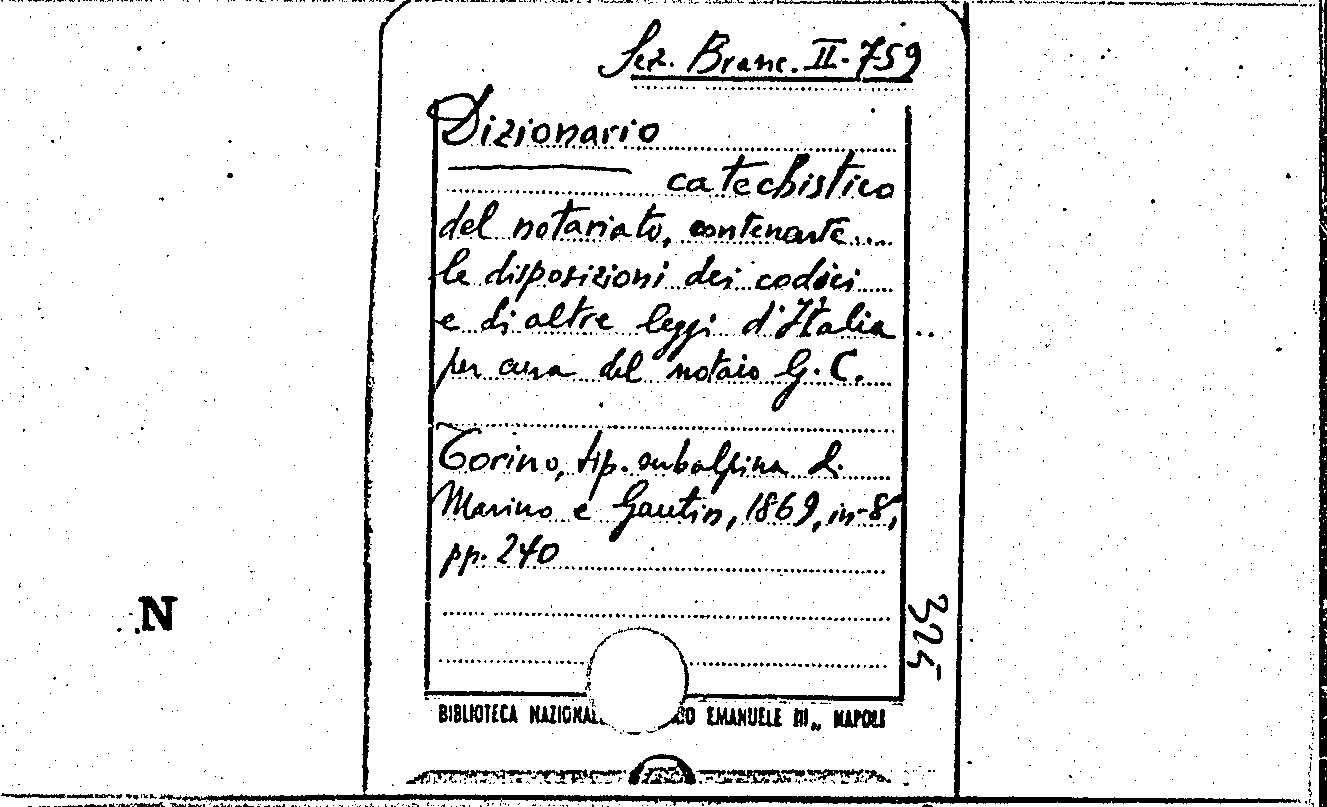 Sez. Branc. II-759
Dizionario
catechistico
del notariato, contenente....
le disposizioni dei codici
e di altre leggi d'Italia ..
per cura del notaio G. C.
Torino, tip. subalpina di
Marino e Gantin, 1869, in-8,
pp. 240
N
325
BIBLIOTECA NAZIONAL CO EMANUELE III„ NAPOLI